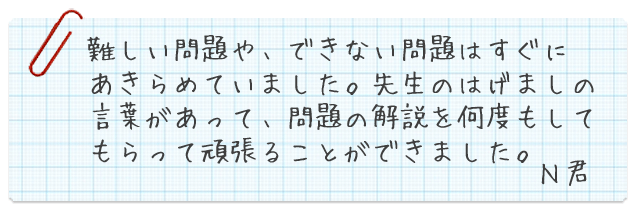 難しい問題や、できない問題はすぐに
あきらめていました。先生のはげましの
言葉があって、問題の解説を何度もして
もらって頑張ることができました。
N君